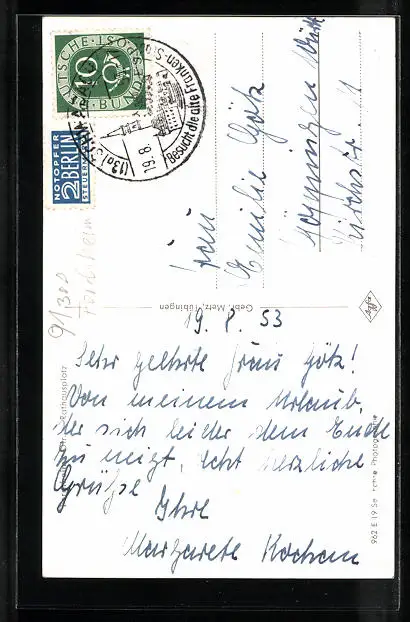 DEUTSCHE BUNDESPOST
10
NOTOPFER
2 BERLIN
STEUER
(13a)
19.8.
Besucht die alte Franken-
Frau
Emilie Götz
Göppingen Württ
91/300
Gebr. Metz, Tübingen
Agfa
19. 8. 53
Sehr geehrte Frau Götz!
Von meinem Urlaub,
der sich leider dem Ende
zu neigt, recht herzliche
Grüsse Ihre
Margarete
Rathausplatz
962 E 19